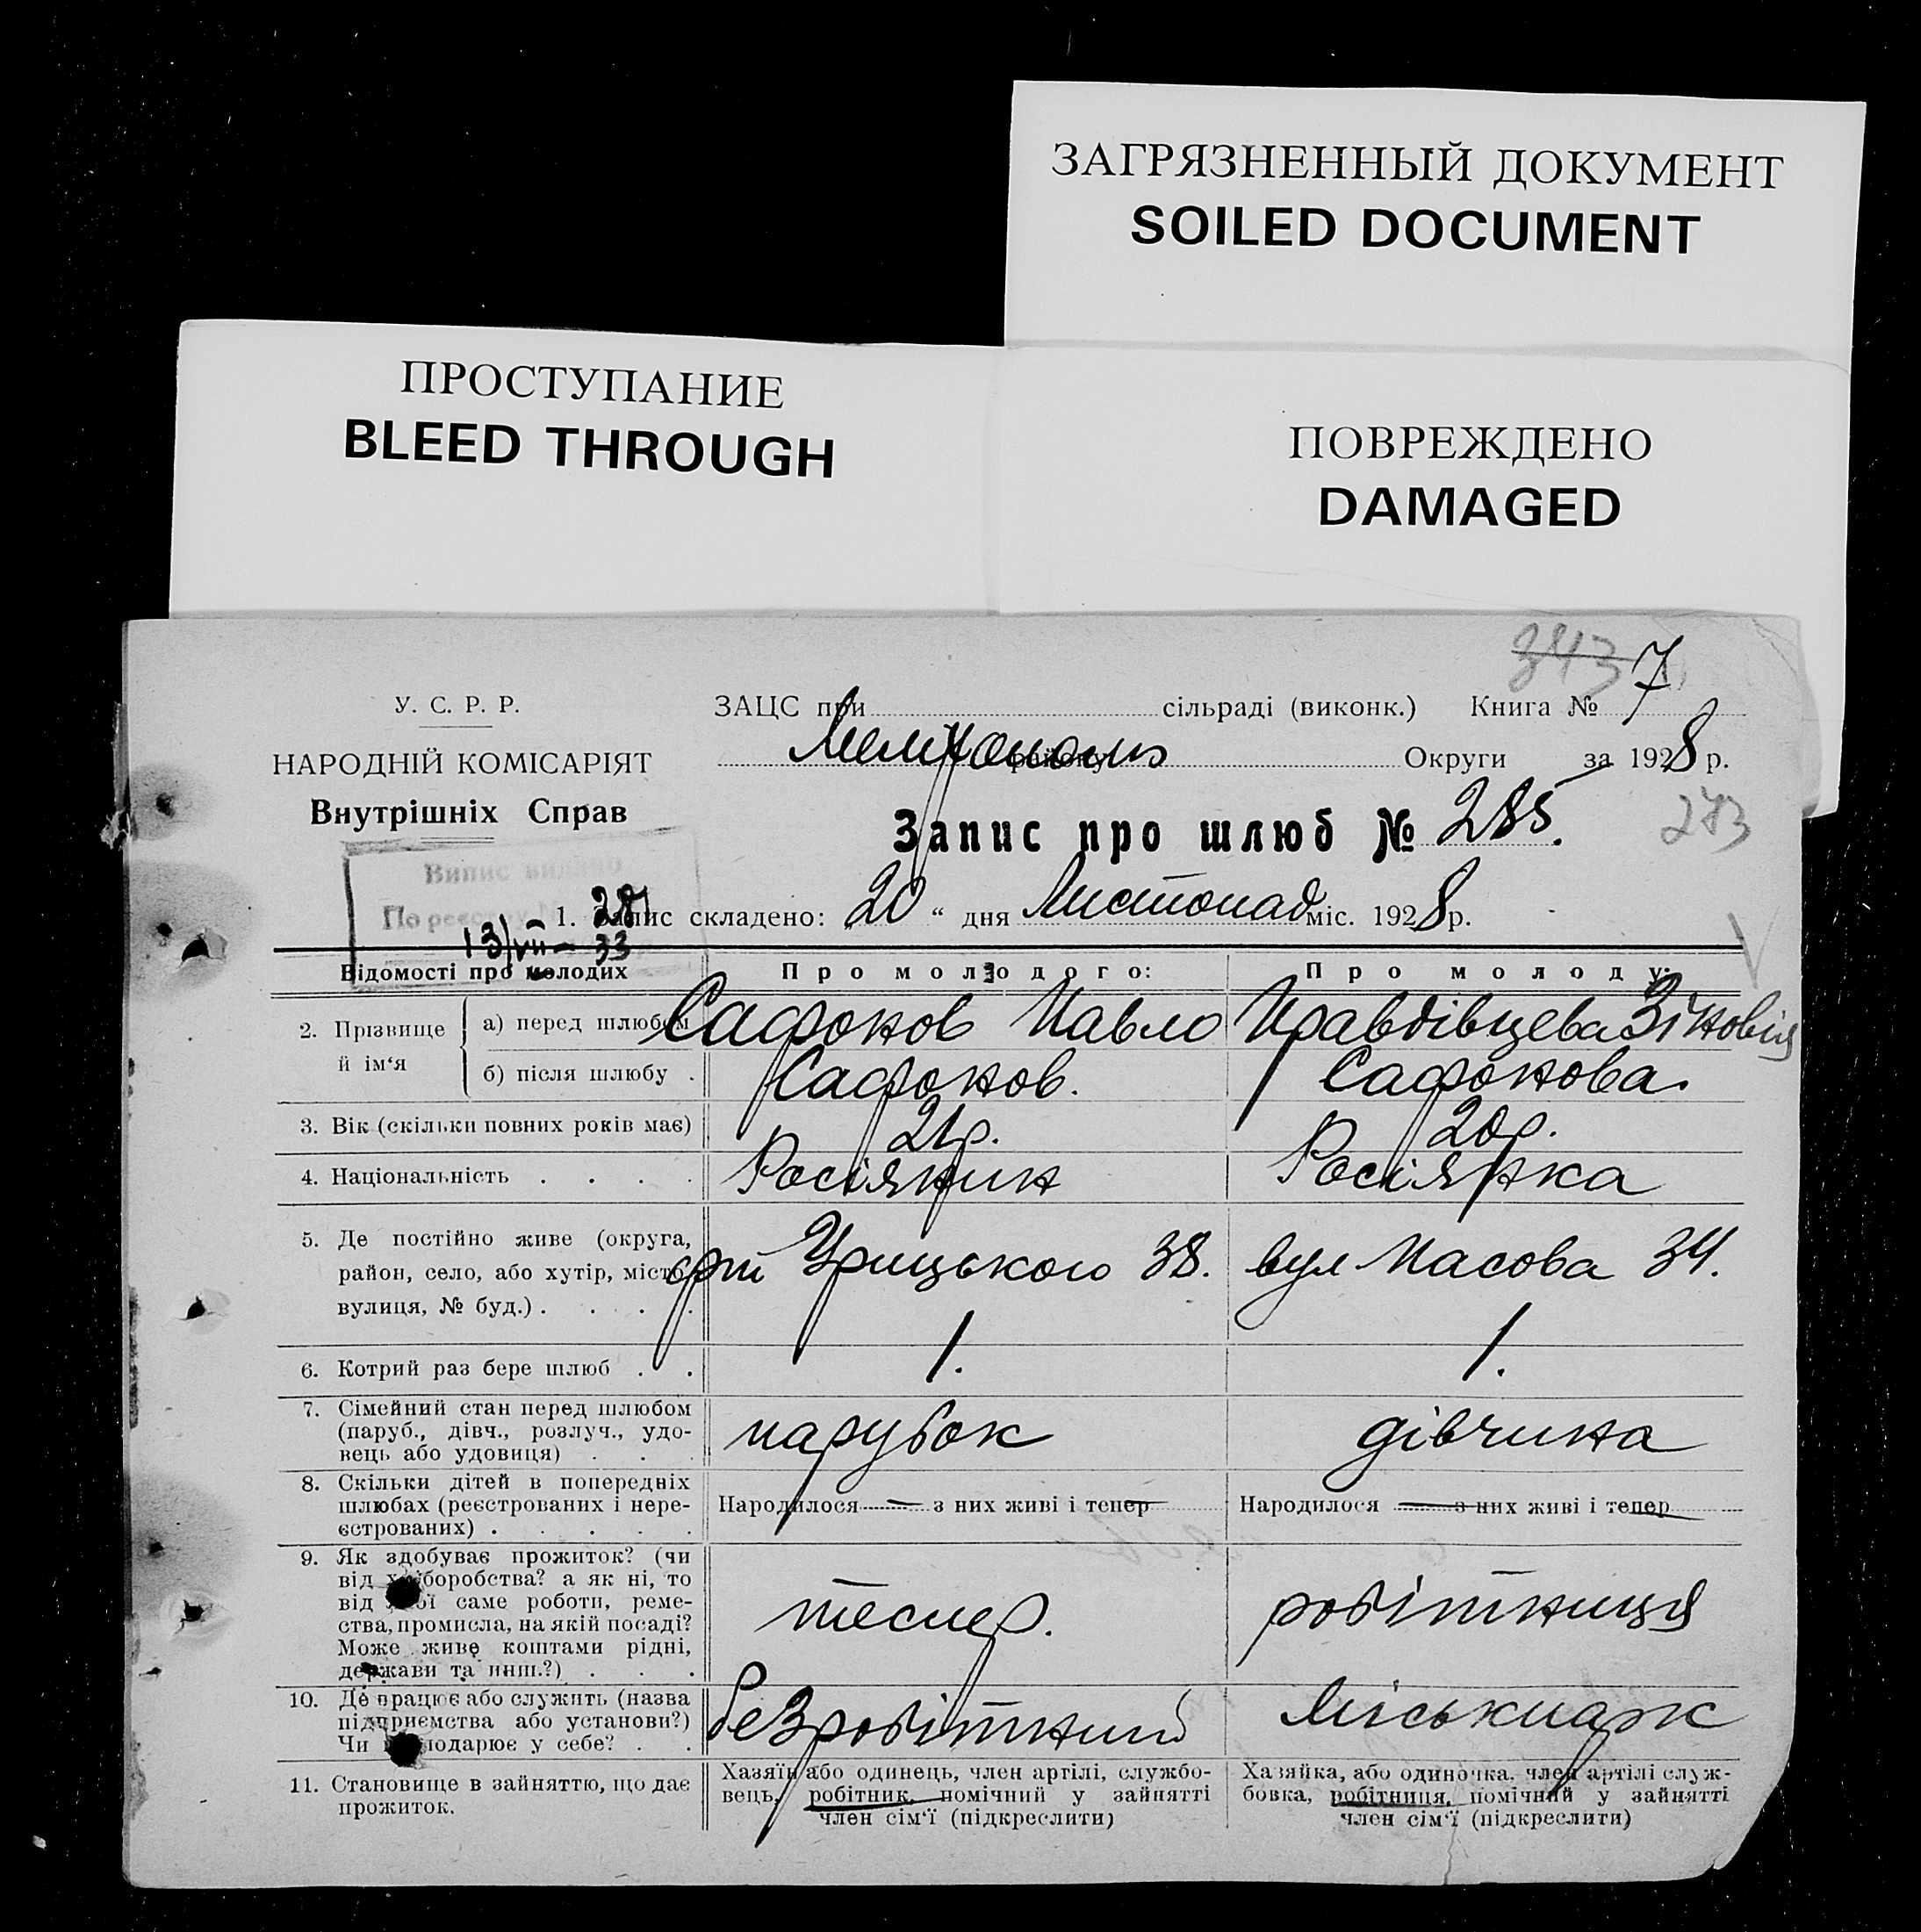 ЗАГРЯЗНЕННЫЙ ДОКУМЕНТ
SOILED DOCUMENT
ПРОСТУПАНИЕ
BLEED THROUGH
ПОВРЕЖДЕНО
DAMAGED
343
У. С. Р. Р.
НАРОДНІЙ КОМІСАРІЯТ
Внутрішніх Справ
ЗАЦС при сільраді (виконк.) Книга № 7
Мелітополь району Округи за 1928 р.
Запис про шлюб № 285.
273
Випис видано
По реєстру № 28
13/VII – 33
1. Запис складено: 20 " дня Листопад міс. 1928 р.
Відомості про молодих
Про молодого:
Про молоду:
2. Прізвище й ім'я
а) перед шлюбом
Сафонов Павло
Правдівцева Зіновія
б) після шлюбу .
Сафонов.
Сафонова.
3. Вік (скільки повних років має)
21р.
20р.
4. Національність . . . .
Росіянин
Росіянка
5. Де постійно живе (округа,
район, село, або хутір, місто,
вулиця, № буд.) . . . .
Урицького 38.
вул Масова 34.
6. Котрий раз бере шлюб . .
1.
1.
7. Сімейний стан перед шлюбом
(паруб., дівч., розлуч., удо-
вець або удовиця) . . .
парубок
дівчина
8. Скільки дітей в попередніх
шлюбах (реєстрованих і нере-
єстрованих) . . . . .
Народилося — з них живі і тепер
Народилося — з них живі і тепер
9. Як здобуває прожиток? (чи
від хліборобства? а як ні, то
від якої саме роботи, реме-
ства, промисла, на якій посаді?
Може живе коштами рідні,
держави та инш.?) . . .
тесляр.
робітниця
10. Де працює або служить (назва
підприємства або установи?)
Чи господарює у себе? . .
безробітний
Міськпарк
11. Становище в зайняттю, що дає
прожиток.
Хазяїн або одинець, член артілі, службо-
вець, робітник, помічний у зайнятті
член сім'ї (підкреслити)
Хазяйка, або одиночка, член артілі служ-
бовка, робітниця, помічний у зайнятті
член сім'ї (підкреслити)